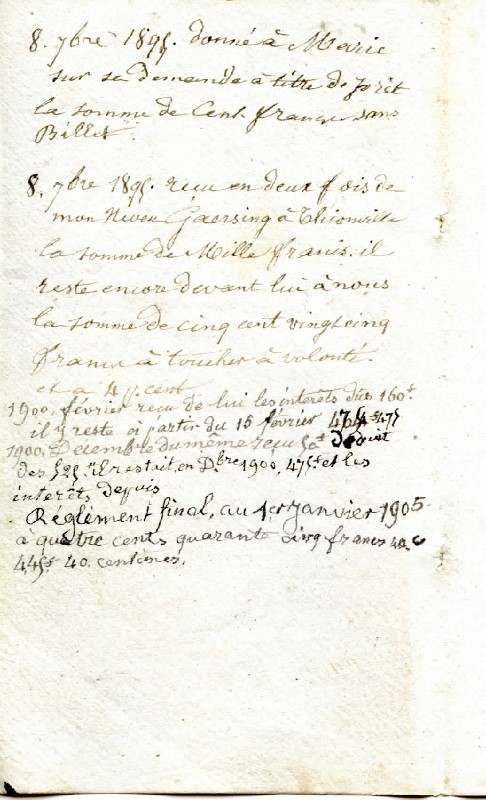 8. 7bre 1895. donné à Marie
sur sa demande à titre de prêt
la somme de Cent francs sans
Billet.
8. 7bre 1895. reçu en deux fois de
mon Neveu Gaersing à Thionville
la somme de Mille francs. il
reste encore devant lui à nous
la somme de cinq cent vingt cinq
francs à toucher à volonté.
et a 4 p. cent
1900, février reçu de lui les intérêts dus 160f.
il y reste à partir du 15 février 475
1900, Décembre du même reçu 50f
des 525f il restait, en Dbre 1900, 475f et les
intérêts depuis
Réglément final, au 1er Janvier 1905
à quatre cents quarante cinq francs 40 c
445f 40 centimes.